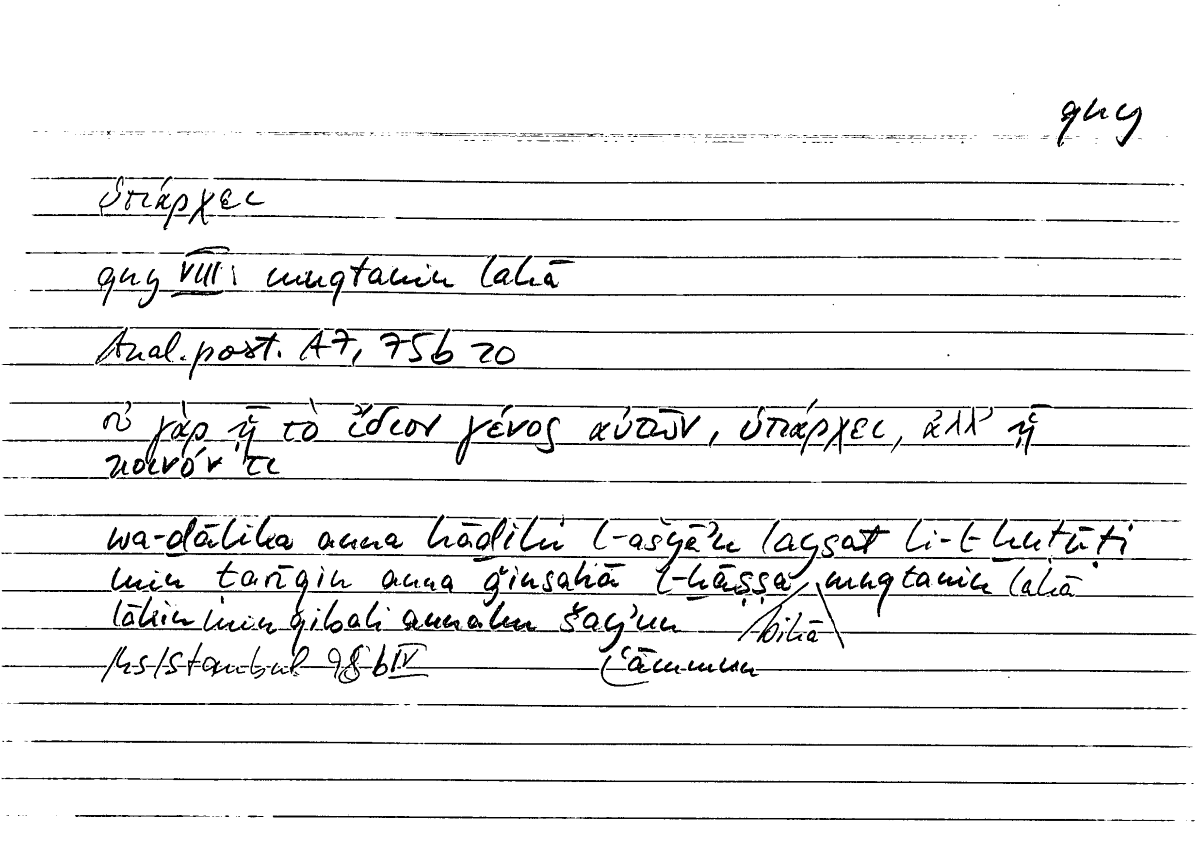 qny
ὑπάρχει
qny VIII: muqtanin lahā
Anal. post. A7, 75b 20
οὐ γὰρ ᾗ τὸ ἴδιον γένος αὐτῶν, ὑπάρχει, ἀλλ’ ᾗ
κοινόν τι
wa-ḏālika anna hāḏihi l-ašyā’u laysat li-l-ḫuṭūṭi
min ṭarīqin anna ǧinsahā l-ḫāṣṣa muqtanin lahā
lākin min qibali annahu šay’un bihā
Ms Istanbul 98b IV ‘āmmun